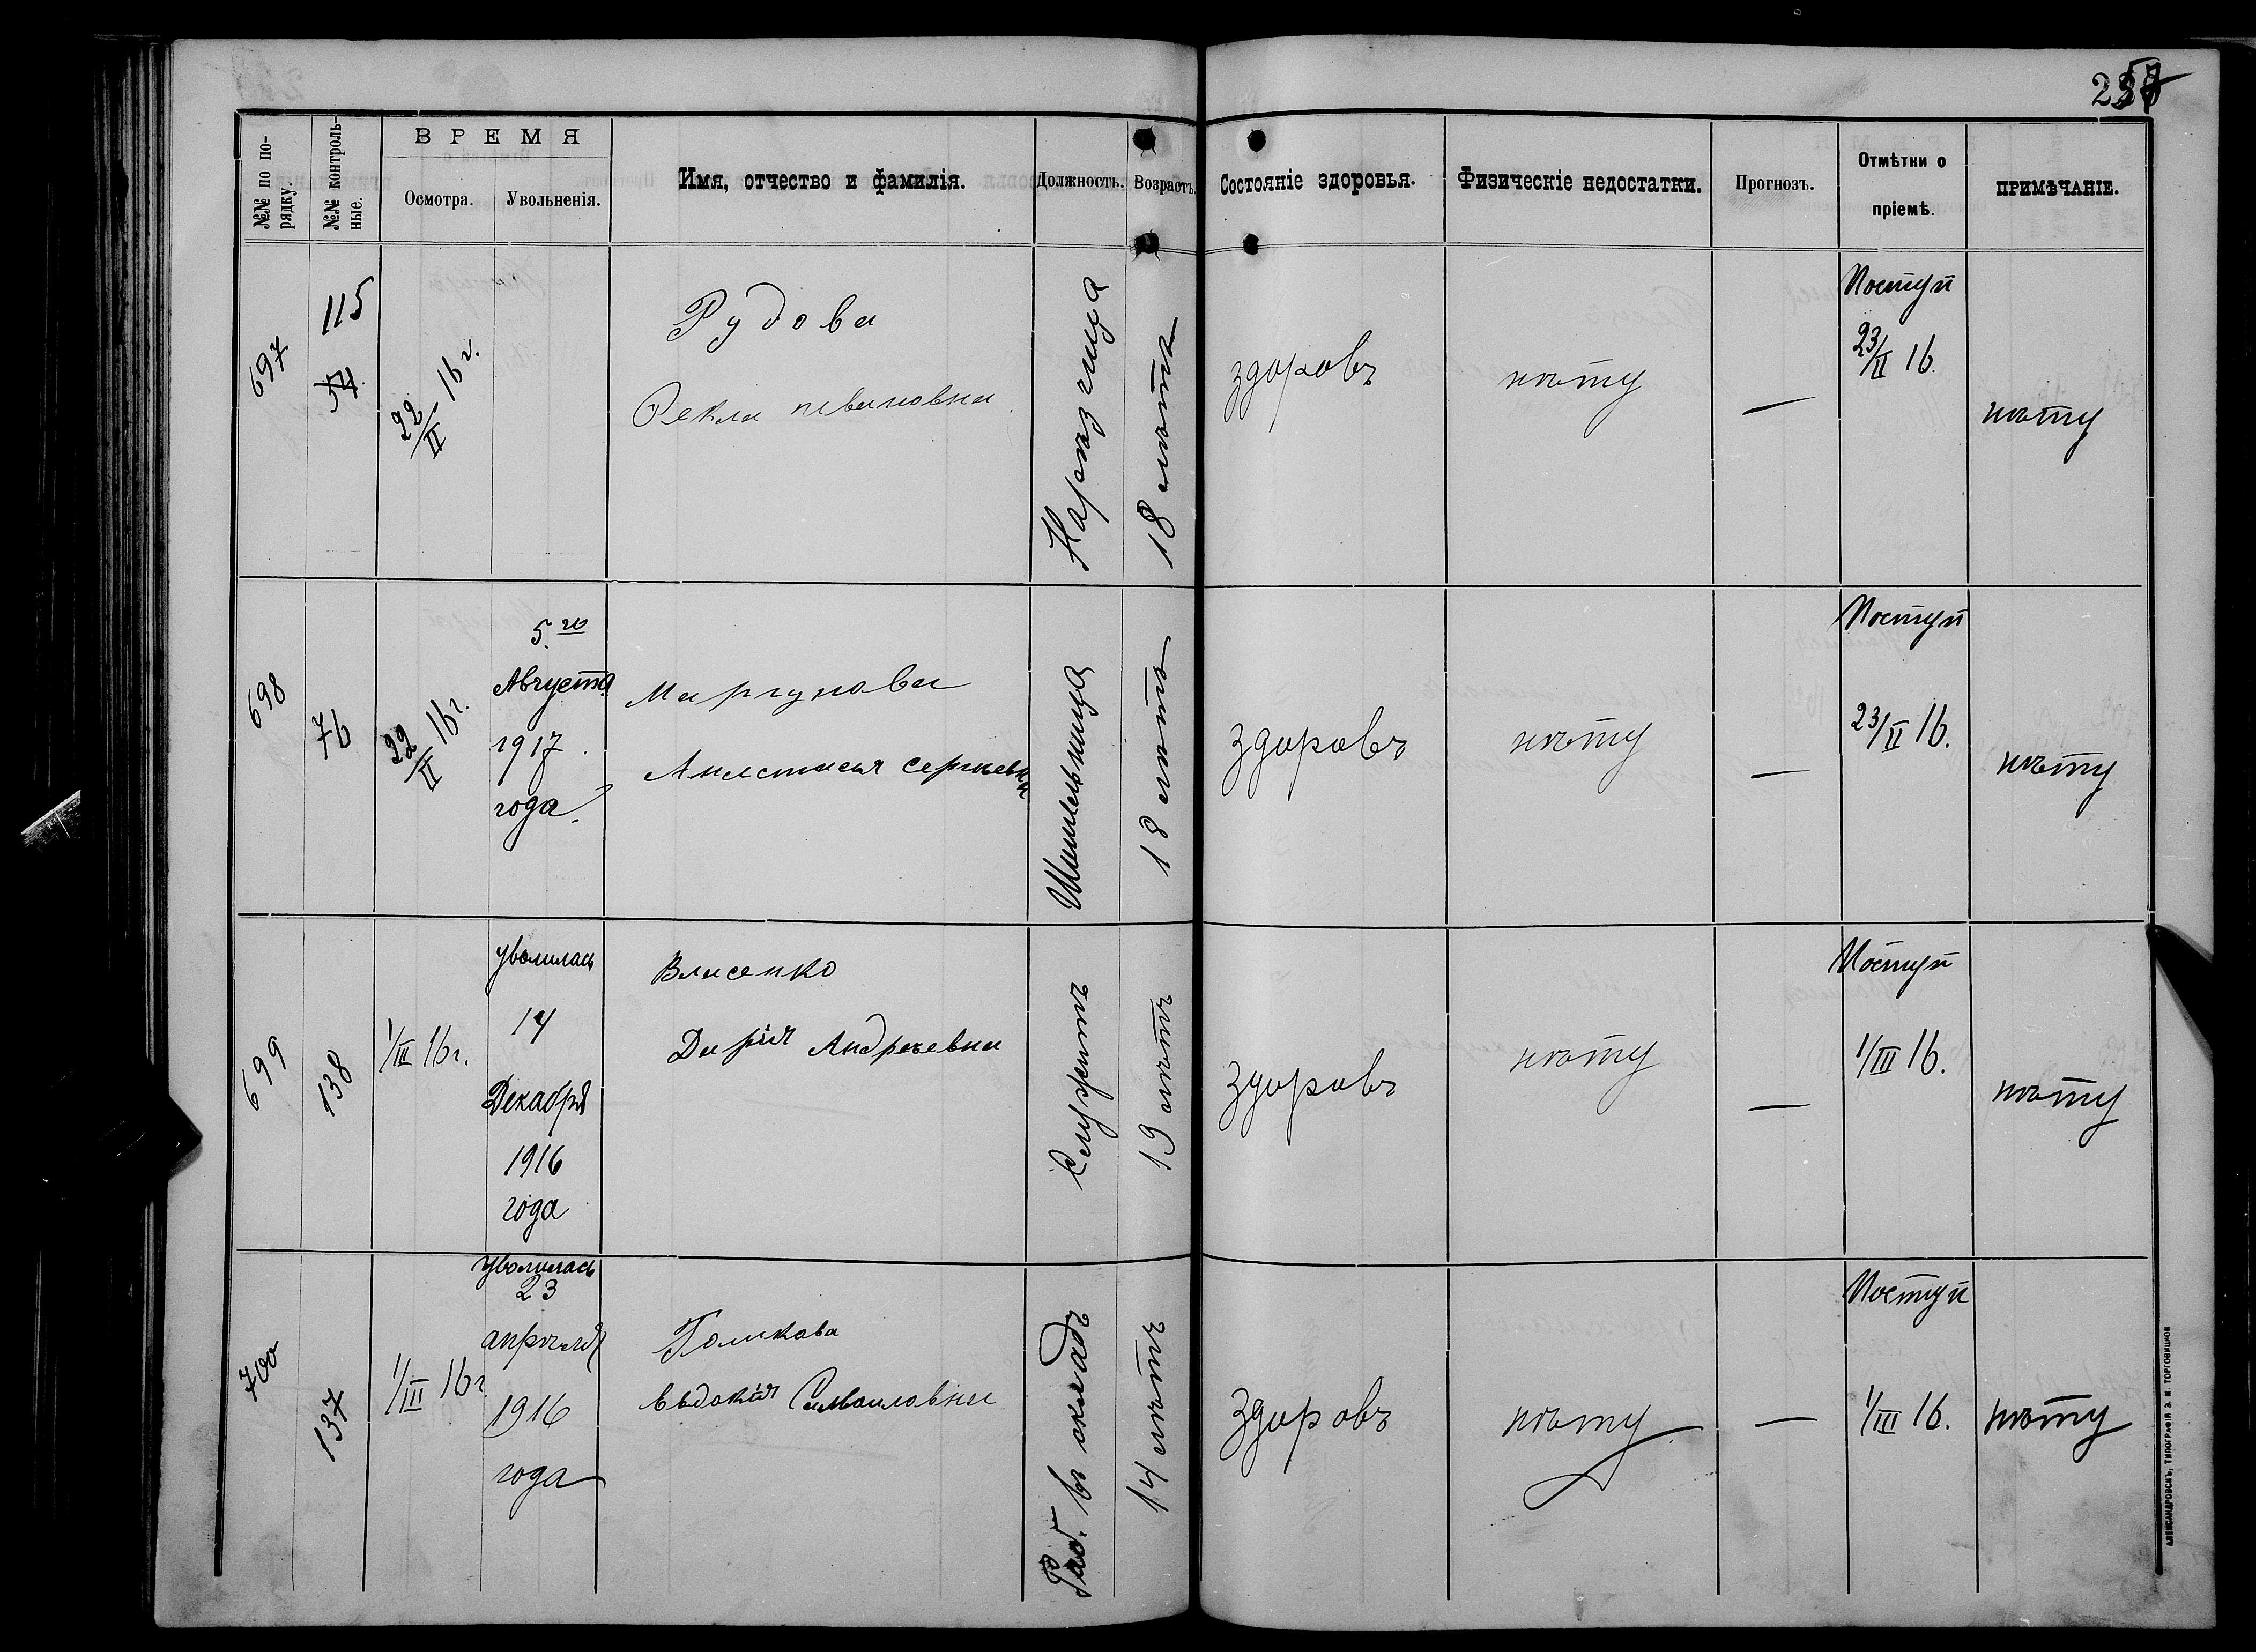 237
№№ по по-
рядку.
№№ контроль-
ные.
ВРЕМЯ
Осмотра.
Увольненія.
Имя, отчество и фамилія.
Должность.
Возрастъ.
Состояніе здоровья.
Физическіе недостатки.
Прогнозъ.
Отмѣтки о
пріемѣ.
ПРИМѢЧАНІЕ.
697
115
54
22/II 16 г.
Рудова
Фекла Ивановна
18 лѣтъ
здоровъ
нѣту
—
Поступ
23/II 16.
нѣту
698
76
22/II 16 г.
5го
Августа
1917
года.
Маргунова
Анастасья Сергѣевна
Шишельница
18 лѣтъ
здоровъ
нѣту
—
Поступ
23/II 16.
нѣту
699
138
1/III 16 г.
уволилась
14
Декабря
1916
года
Власенко
Дарія Андреевна
Служитъ
19 лѣтъ
здоровъ
нѣту
—
Поступ
1/III 16.
нѣту
700
137
1/III 16 г
уволилась
23
апрѣля
1916
года
Голикова
Евдокія Самойловна
Раб. въ складѣ
14 лѣтъ
здоровъ
нѣту
—
Поступ
1/III 16.
нѣту
АЛЕКСАНДРОВСКЪ, ТИПОГРАФІЯ З. М. ТОРГОВИЦКОВ